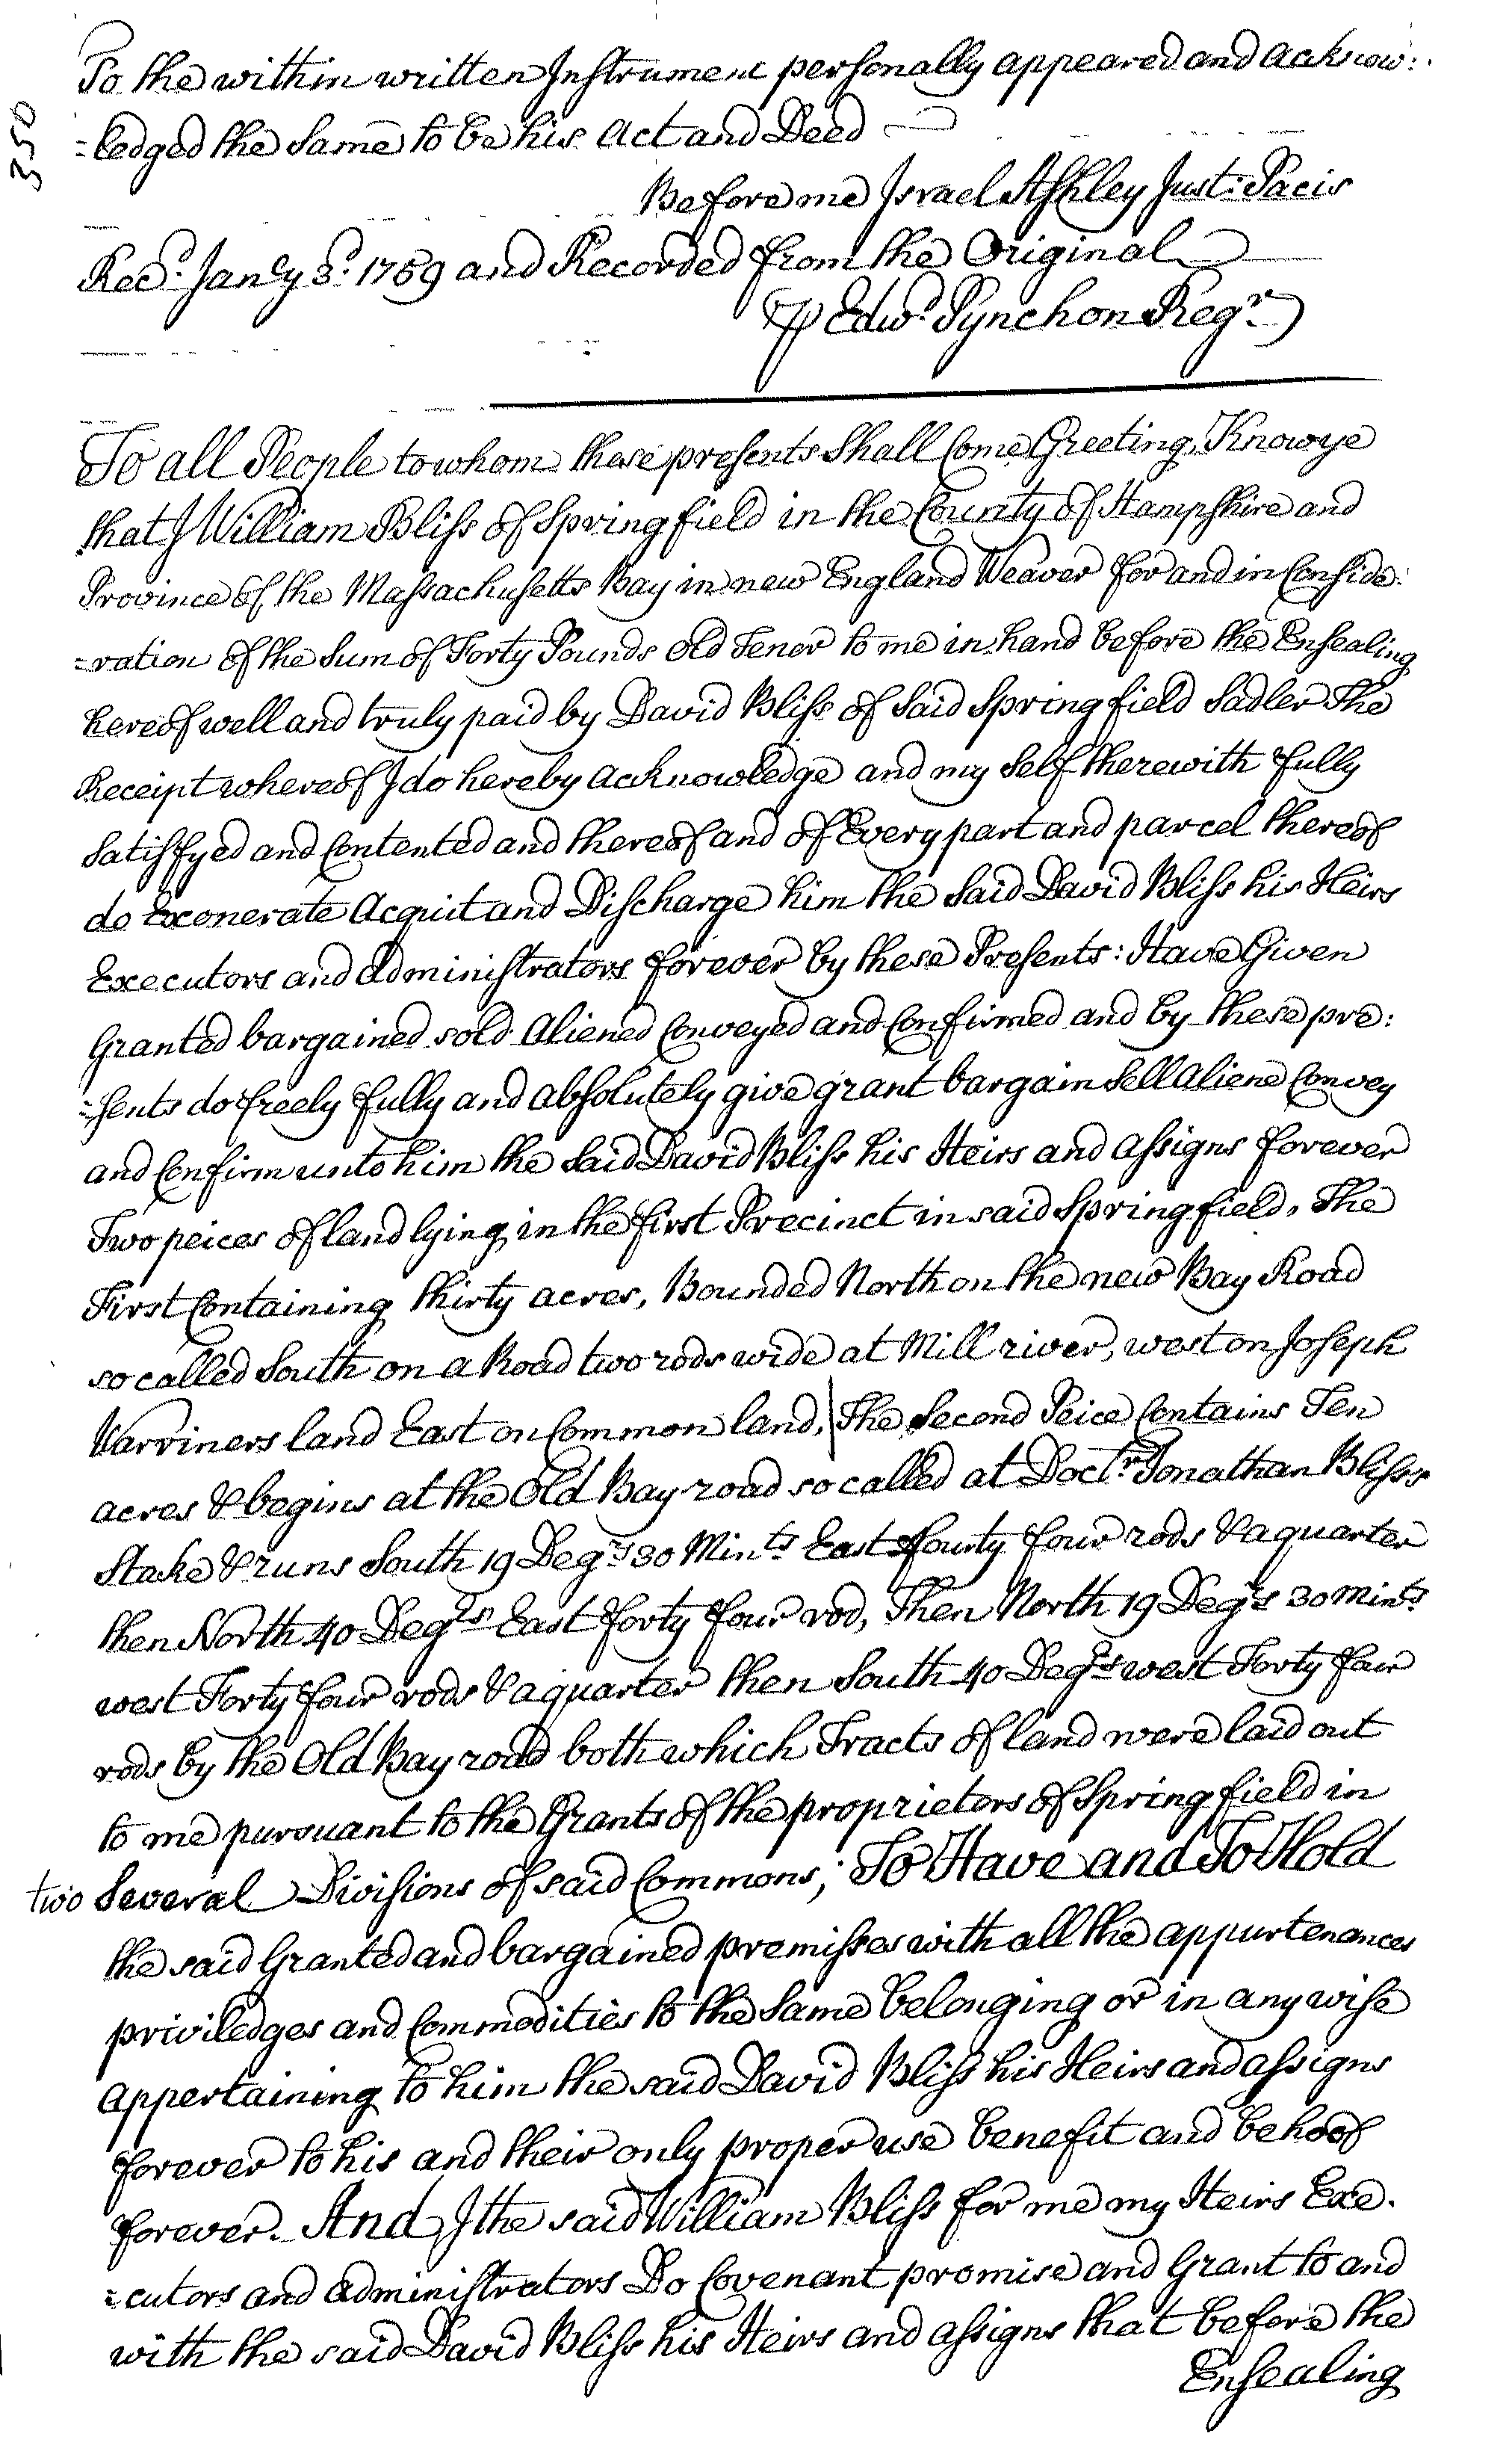 350
To the within written Instrument personally appeared and Acknow:
=ledged the Same to be his Act and Deed
Before me Israel Ashley Just: Pacis
Recd. Jan.ry 3d. 1759 and Recorded from the Original
Edwd. Pynchon Regr.
To all People to whom these presents Shall Come Greeting, Know ye
that I William Bliss of Springfield in the County of Hampshire and
Province of the Massachusetts Bay in new England Weaver for and in Conside:
=ration of the Sum of Forty Pounds Old Tenor to me in hand before the Ensealing
hereof well and truly paid by David Bliss of Said Springfield Sadler The
Receipt whereof I do hereby acknowledge and my Self therewith fully
Satisfyed and Contented and thereof and of Every part and parcel thereof
do Exonerate Acquit and Discharge him the Said David Bliss his Heirs
Executors and Administrators forever by these Presents: Have Given
Granted bargained sold Aliened Conveyed and Confirmed and by these pre:
=sents do freely fully and absolutely give grant bargain Sell Aliene Convey
and Confirm unto him the Said David Bliss his Heirs and Assigns forever
Two peices of land lying in the first Precinct in said Springfield, The
First Containing thirty acres, Bounded North on the new Bay Road
so called South on a Road two rods wide at Mill river, west on Joseph
Warriners land East on Common land, The Second Peice Contains Ten
acres & begins at the Old Bay road so called at Doctr. Jonathan Bliss's
Stake & runs South 19 Degrs 30 Mints East fourty four rods & a quarter
then North 40 Degrs East forty four rod, Then North 19 Degrs 30 mints
west Forty four rods & a quarter then South 40 Degrs west Forty four
rods by the Old Bay road both which Tracts of land were laid out
to me pursuant to the Grants of the proprietors of Springfield in
two Several Divisions of said Commons; To Have and To Hold
the said Granted and bargained premisses with all the appurtenances
priviledges and Commodities to the Same belonging or in any wise
Appertaining to him the said David Bliss his Heirs and assigns
forever to his and their only proper use benefit and behoof
forever. And I the said William Bliss for me my Heirs Exe.
=cutors and Administrators Do Covenant promise and Grant to and
with the said David Bliss his Heirs and assigns that before the
Ensealing